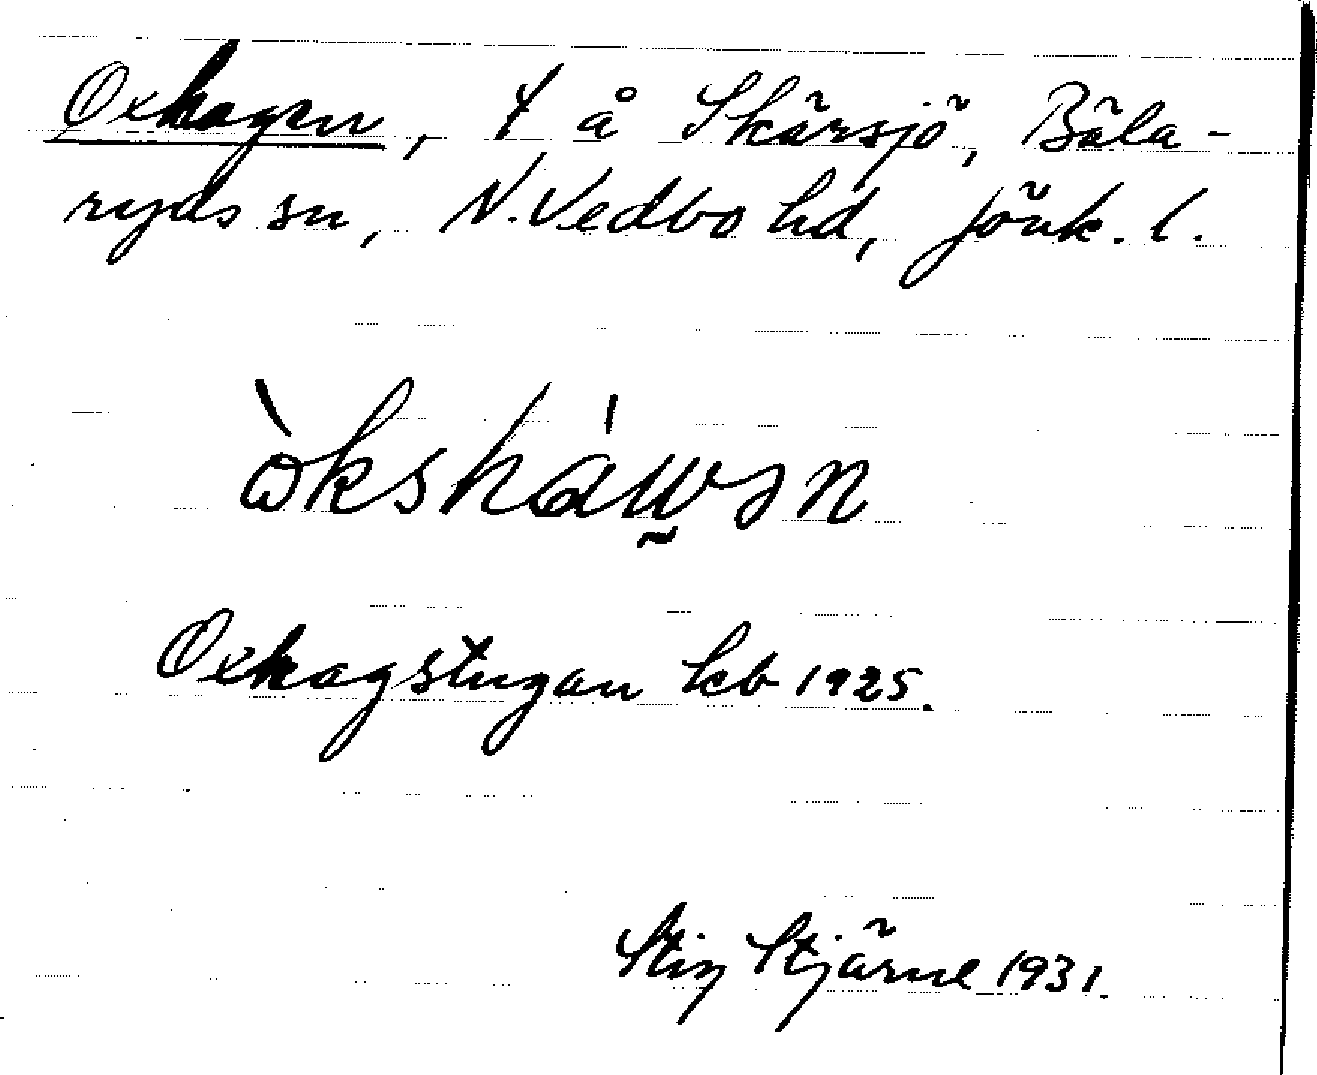 Oxhagen, t å Skärsjö, Bäla-
ryds sn, N. Vedbo hd, Jönk. l.
òksháwən
Oxhagstugan kb 1925.
Stig Stjärne 1931.